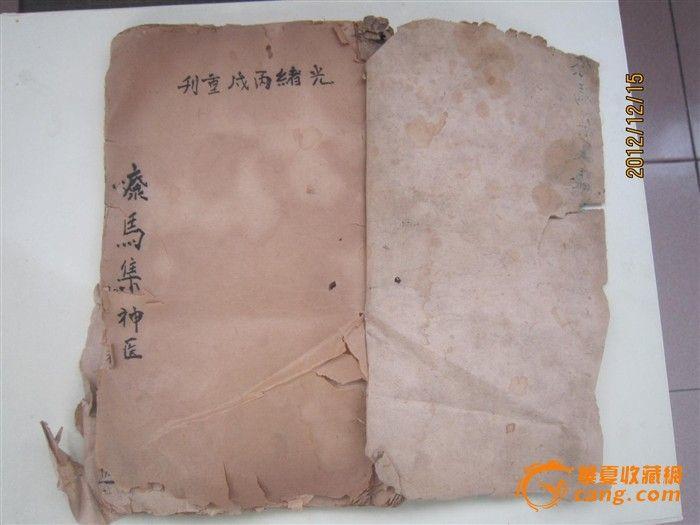 光緒丙戌重刊
療馬集神医
2012/12/15
華夏收藏網
cang.com